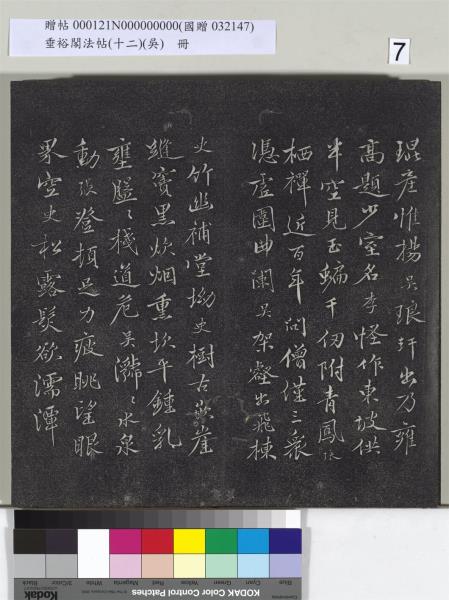 贈帖 000121N000000000(國贈 032147)
垂裕閣法帖(十二)(吳) 冊
7
琨產惟揚吳琅玕出乃雍
高題少室名李怪作東坡供
半空見玉蝙千仞附青鳳張
栖禪近百年问僧僅三衆
憑虛園曲闌吳架壑出飛棟
史竹幽補堂坳史樹古嵌崖
縫竇黑炊烟重坎平鍾乳
壅隘〻棧道危吳瀰〻水泉
動張登頓足力疲眺望眼
界空史松露髮欲濡渾
Blue Cyan Green Yellow Red Magenta White 3/Color Black
KODAK Color Control Patches